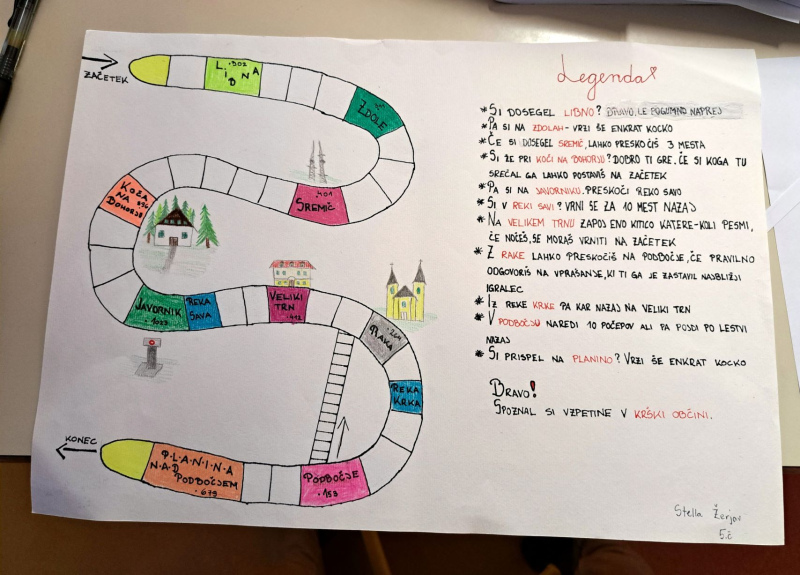 ZAČETEK
.302
LIBNA
ZDOLE
.401
SREMIČ
KOČA
NA
BOHORJU
JAVORNIK
REKA
SAVA
VELIKI
TRN
RAKA
REKA
KRKA
KONEC
P-L-A-N-I-N-A
N-A-D
PODBOČJEM
.679
PODBOČJE
.153
Legenda
*SI DOSEGEL LIBNO? BRAVO, LE POGUMNO NAPREJ
*PA SI NA ZDOLAH - VRZI ŠE ENKRAT KOCKO
*ČE SI DOSEGEL SREMIČ, LAHKO PRESKOČIŠ 3 MESTA
*SI ŽE PRI KOČI NA BOHORJU? DOBRO TI GRE, ČE SI KOGA TU
SREČAL GA LAHKO POSTAVIŠ NA ZAČETEK
*PA SI NA JAVORNIKU. PRESKOČI REKO SAVO
*SI V REKI SAVI? VRNI SE ZA 10 MEST NAZAJ
*NA VELIKEM TRNU ZAPOJ ENO KITICO KATERE-KOLI PESMI,
ČE NOČEŠ, SE MORAŠ VRNITI NA ZAČETEK
*Z RAKE LAHKO PRESKOČIŠ NA PODBOČJE, ČE PRAVILNO
ODGOVORIŠ NA VPRAŠANJE, KI TI GA JE ZASTAVIL NAJBLIŽJI
IGRALEC
*IZ REKE KRKE PA KAR NAZAJ NA VELIKI TRN
*V PODBOČJU NAREDI 10 POČEPOV ALI PA POJDI PO LESTVI
NAZAJ
*SI PRISPEL NA PLANINO? VRZI ŠE ENKRAT KOCKO
BRAVO!
SPOZNAL SI VZPETINE V KRŠKI OBČINI.
Stella
5.č